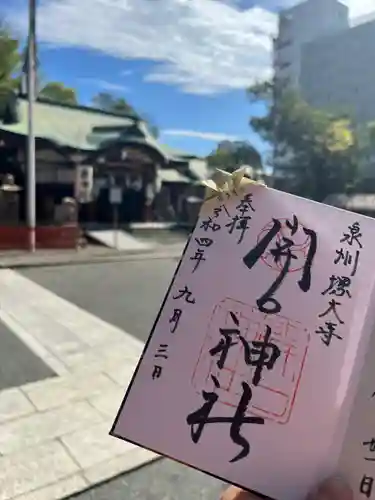 奉拝
泉州堺大寺
開口神社
令和四年九月三日
日